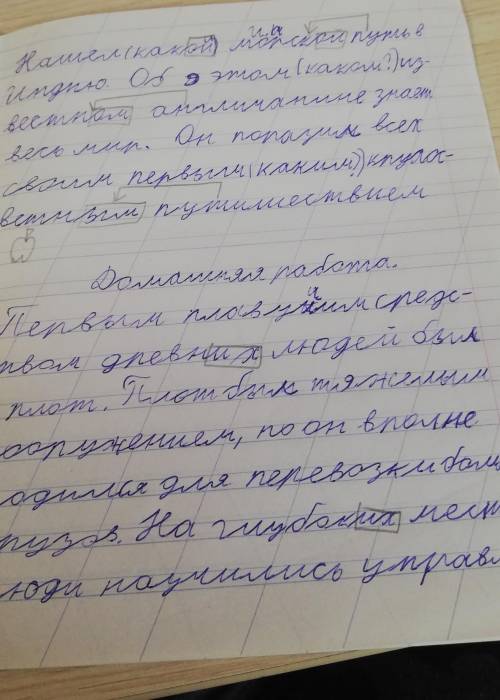 и.а
Нашел (какой) морской путь в
Индию. Об этом (каком?) из-
вестном англичанине знает
весь мир. Он поразил всех
своим первым (каким?) кругос-
ветным путишествием
Домашняя работа.
Первым плавучим средс-
твом древних людей был
плот. Плот был тяжелым
сооружением, но он вполне
одился для перевозки боль
рузов. На глубоких мест
юди научились управл